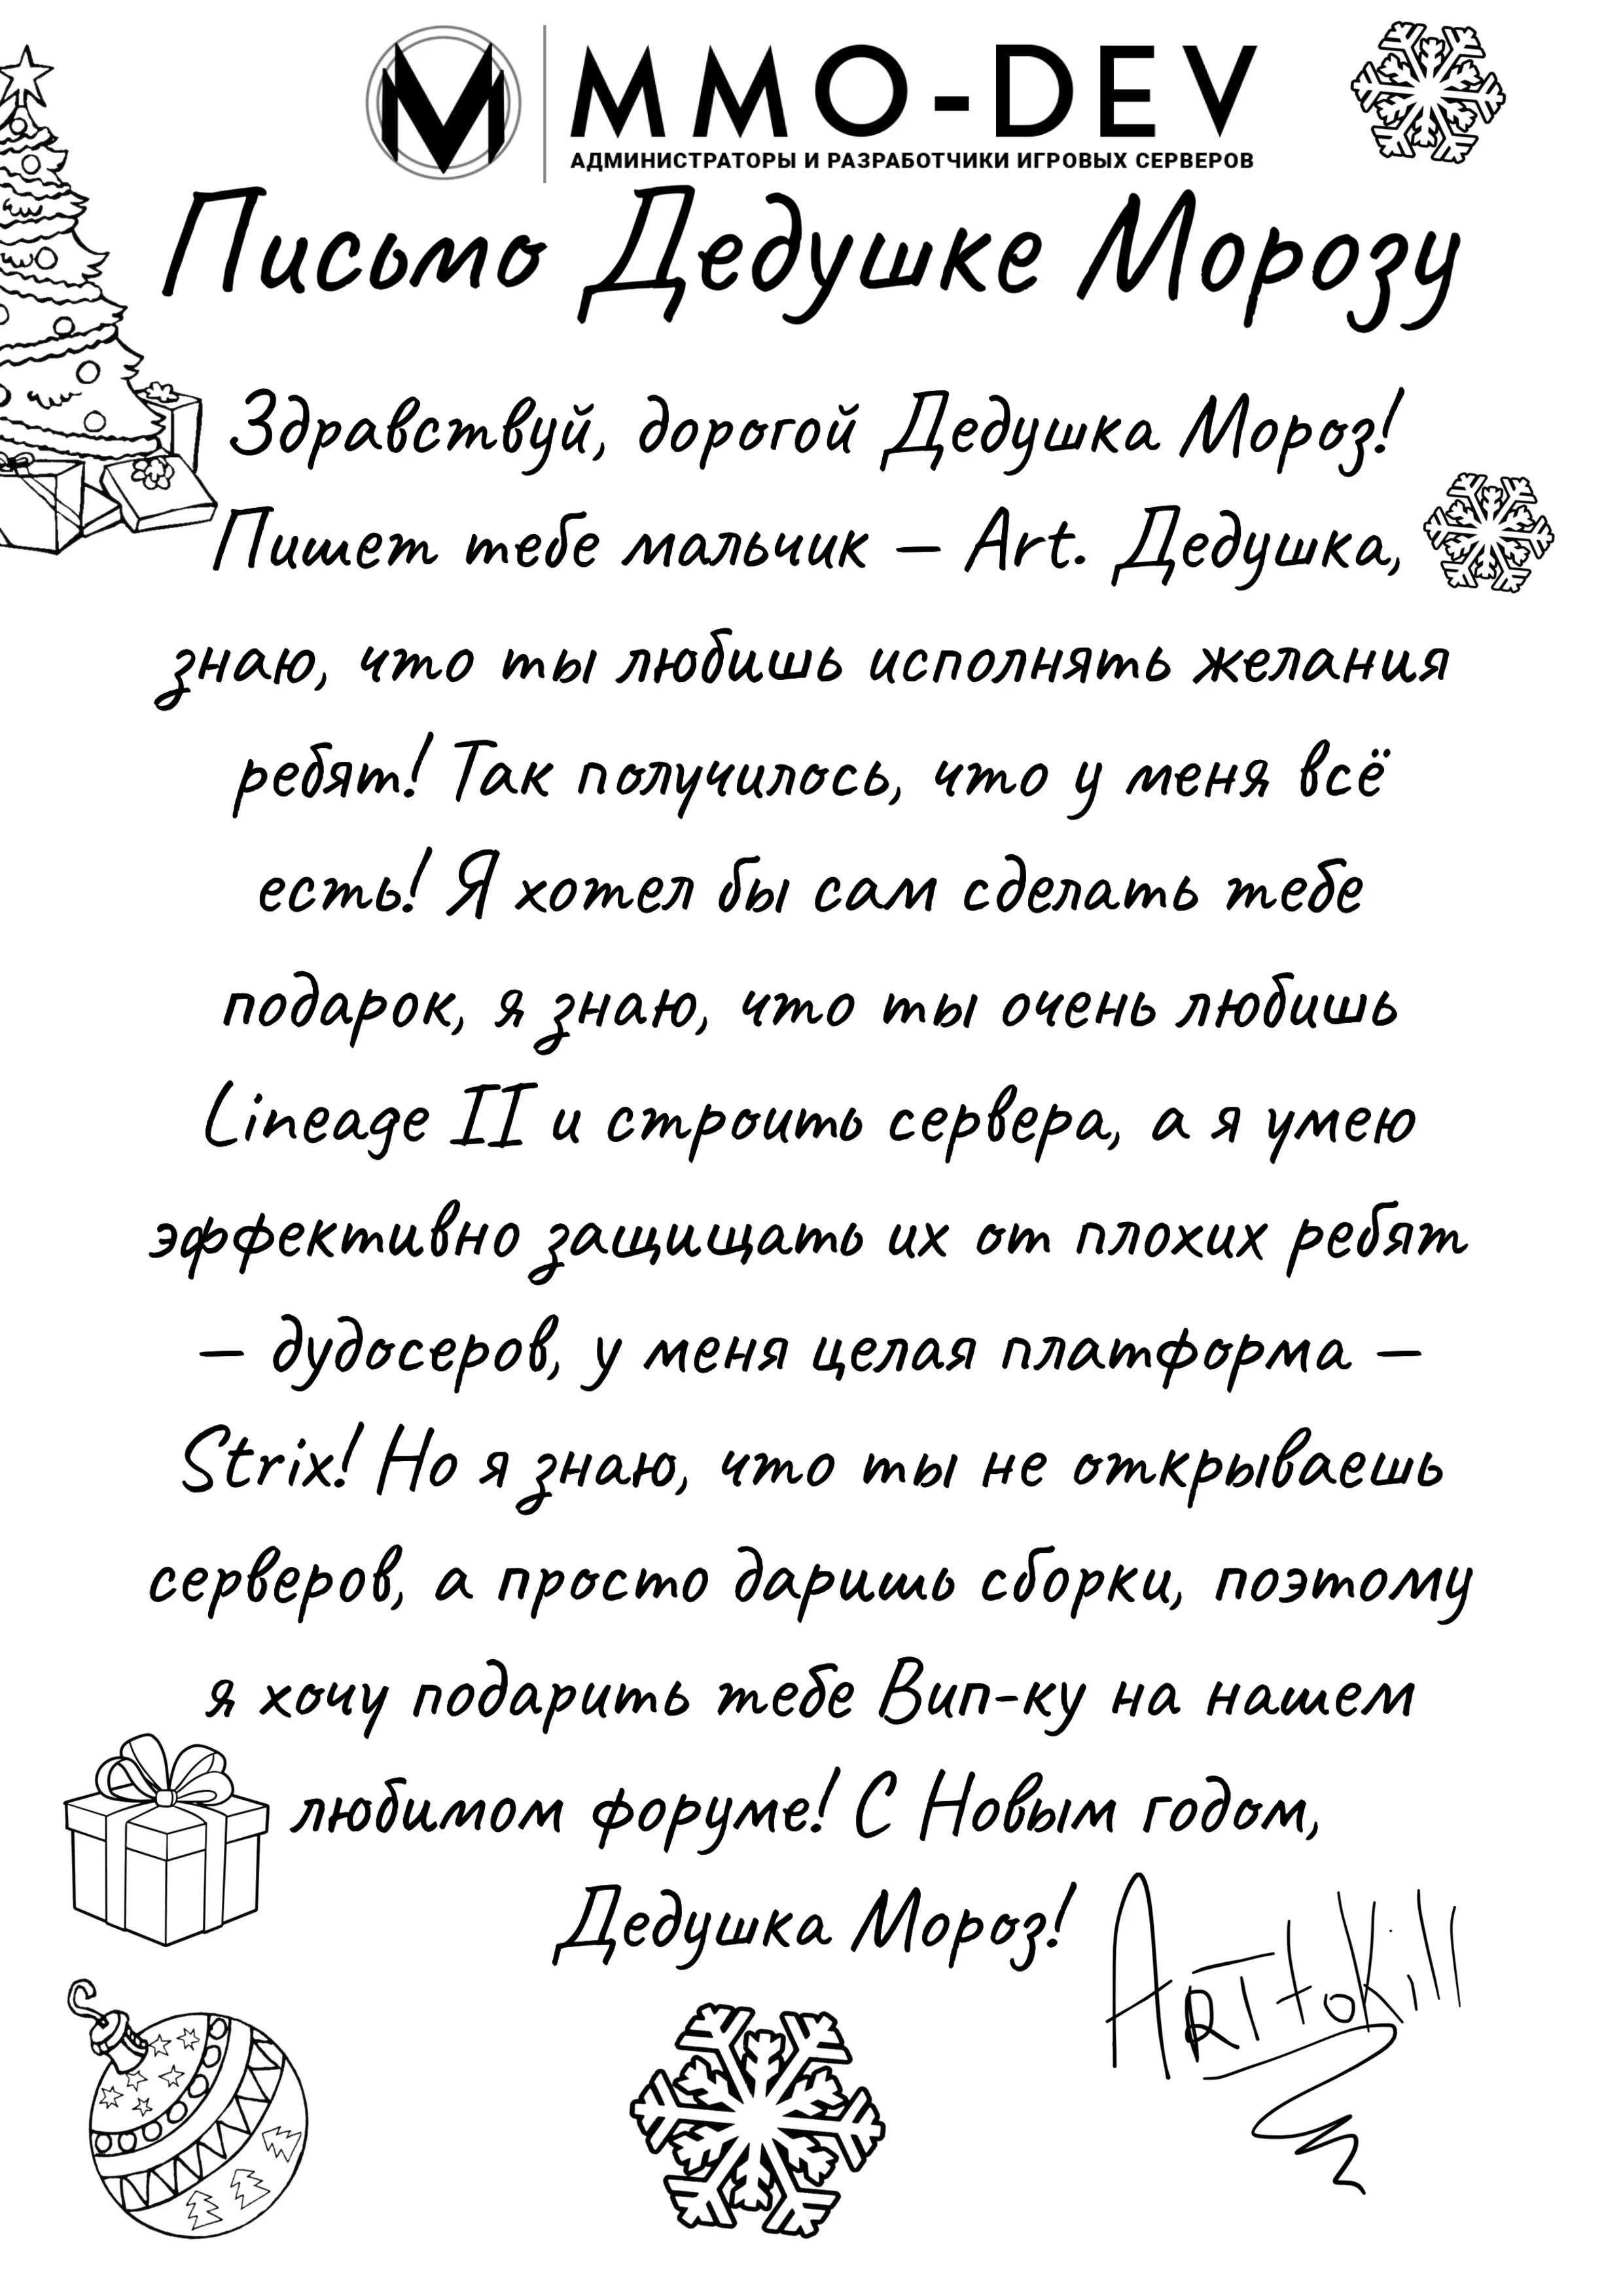 MMO-DEV
АДМИНИСТРАТОРЫ И РАЗРАБОТЧИКИ ИГРОВЫХ СЕРВЕРОВ
Письмо Дедушке Морозу
Здравствуй, дорогой Дедушка Мороз!
Пишет тебе мальчик – Art. Дедушка,
знаю, что ты любишь исполнять желания
ребят! Так получилось, что у меня всё
есть! Я хотел бы сам сделать тебе
подарок, я знаю, что ты очень любишь
Lineage II и строить сервера, а я умею
эффективно защищать их от плохих ребят
– дудосеров, у меня целая платформа –
Strix! Но я знаю, что ты не открываешь
серверов, а просто даришь сборки, поэтому
я хочу подарить тебе Вип-ку на нашем
любимом форуме! С Новым годом,
Дедушка Мороз!
ARTtoKill